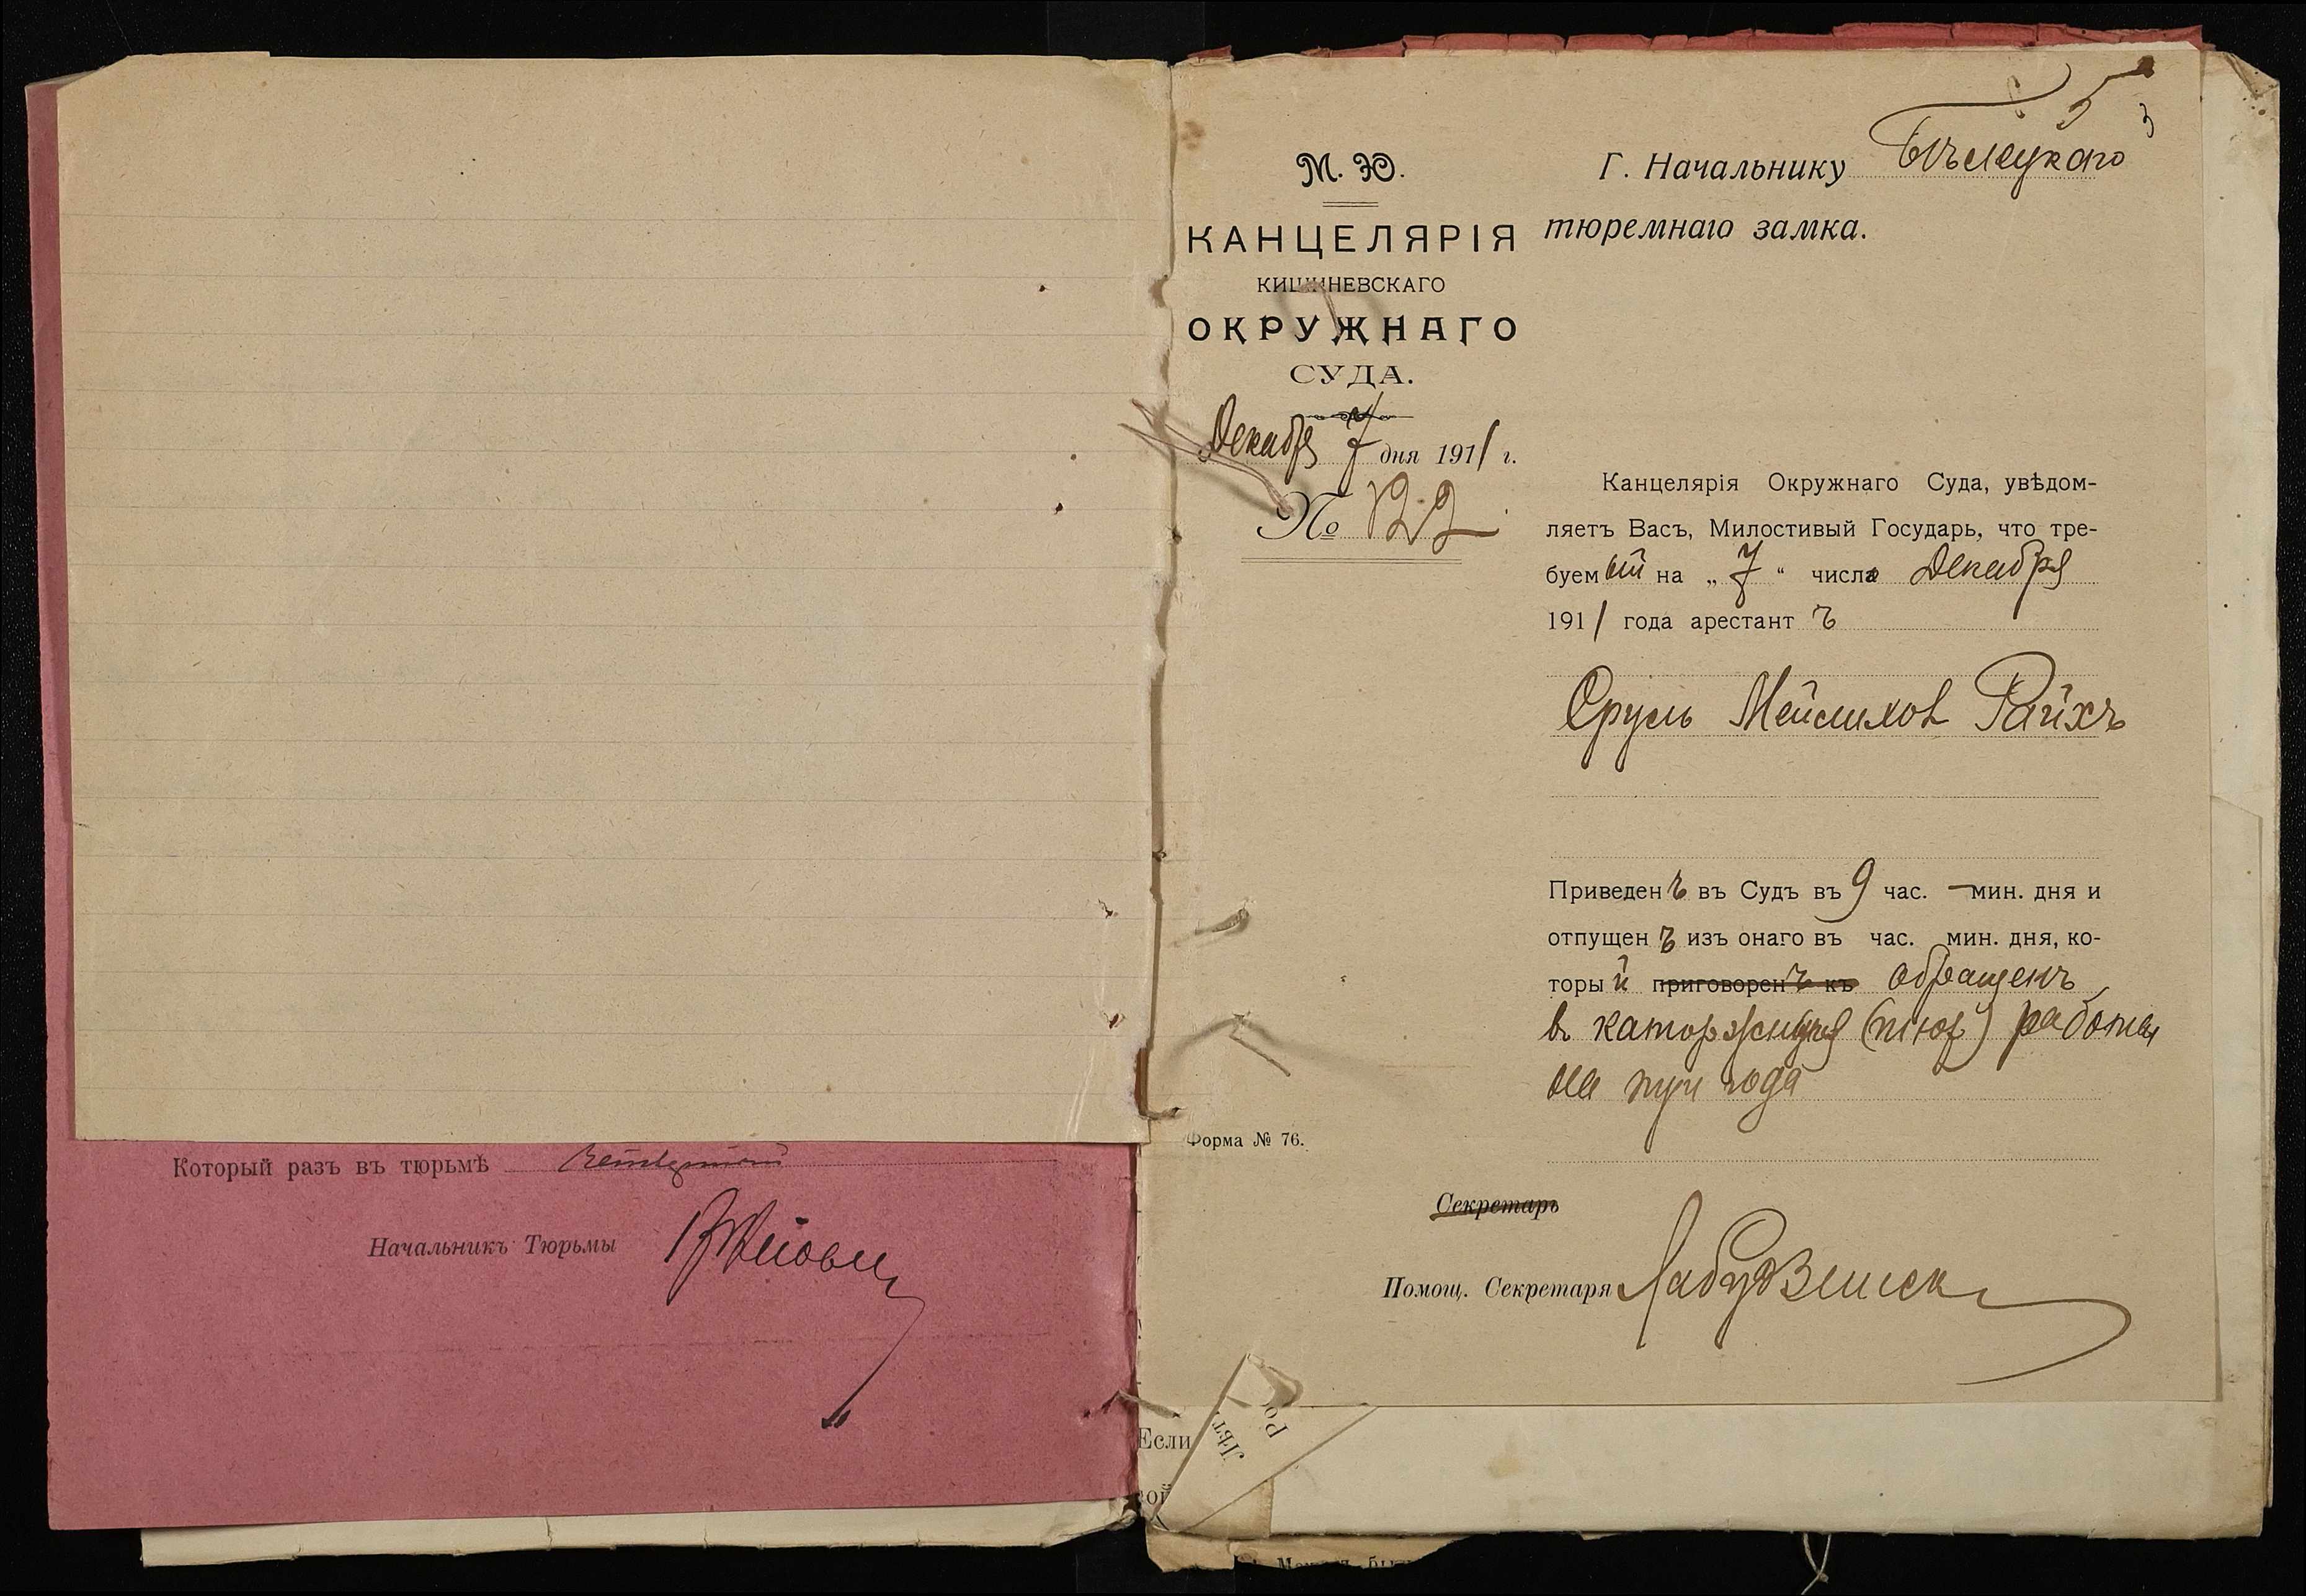 Который разъ въ тюрьмѣ
Начальникъ Тюрьмы
5
3
М. Ю.
КАНЦЕЛЯРІЯ
КИШИНЕВСКАГО
ОКРУЖНАГО
СУДА.
Декабря 7 дня 1911 г.
№ 122
Форма № 76.
Г. Начальнику Бѣлецкаго
тюремнаго замка.
Канцелярія Окружнаго Суда, увѣдом-
ляетъ Васъ, Милостивый Государь, что тре-
буемый на „7“ числа Декабря
1911 года арестантъ
Сруль Мейлихов Райхъ
Приведенъ въ Судъ въ 9 час. — мин. дня и
отпущенъ изъ онаго въ час. мин. дня, ко-
торый приговоренъ къ обращенъ
въ каторжныя (тюр) работы
на три года
Секретарь
Помощ. Секретаря
Если
Лѣт
Ро